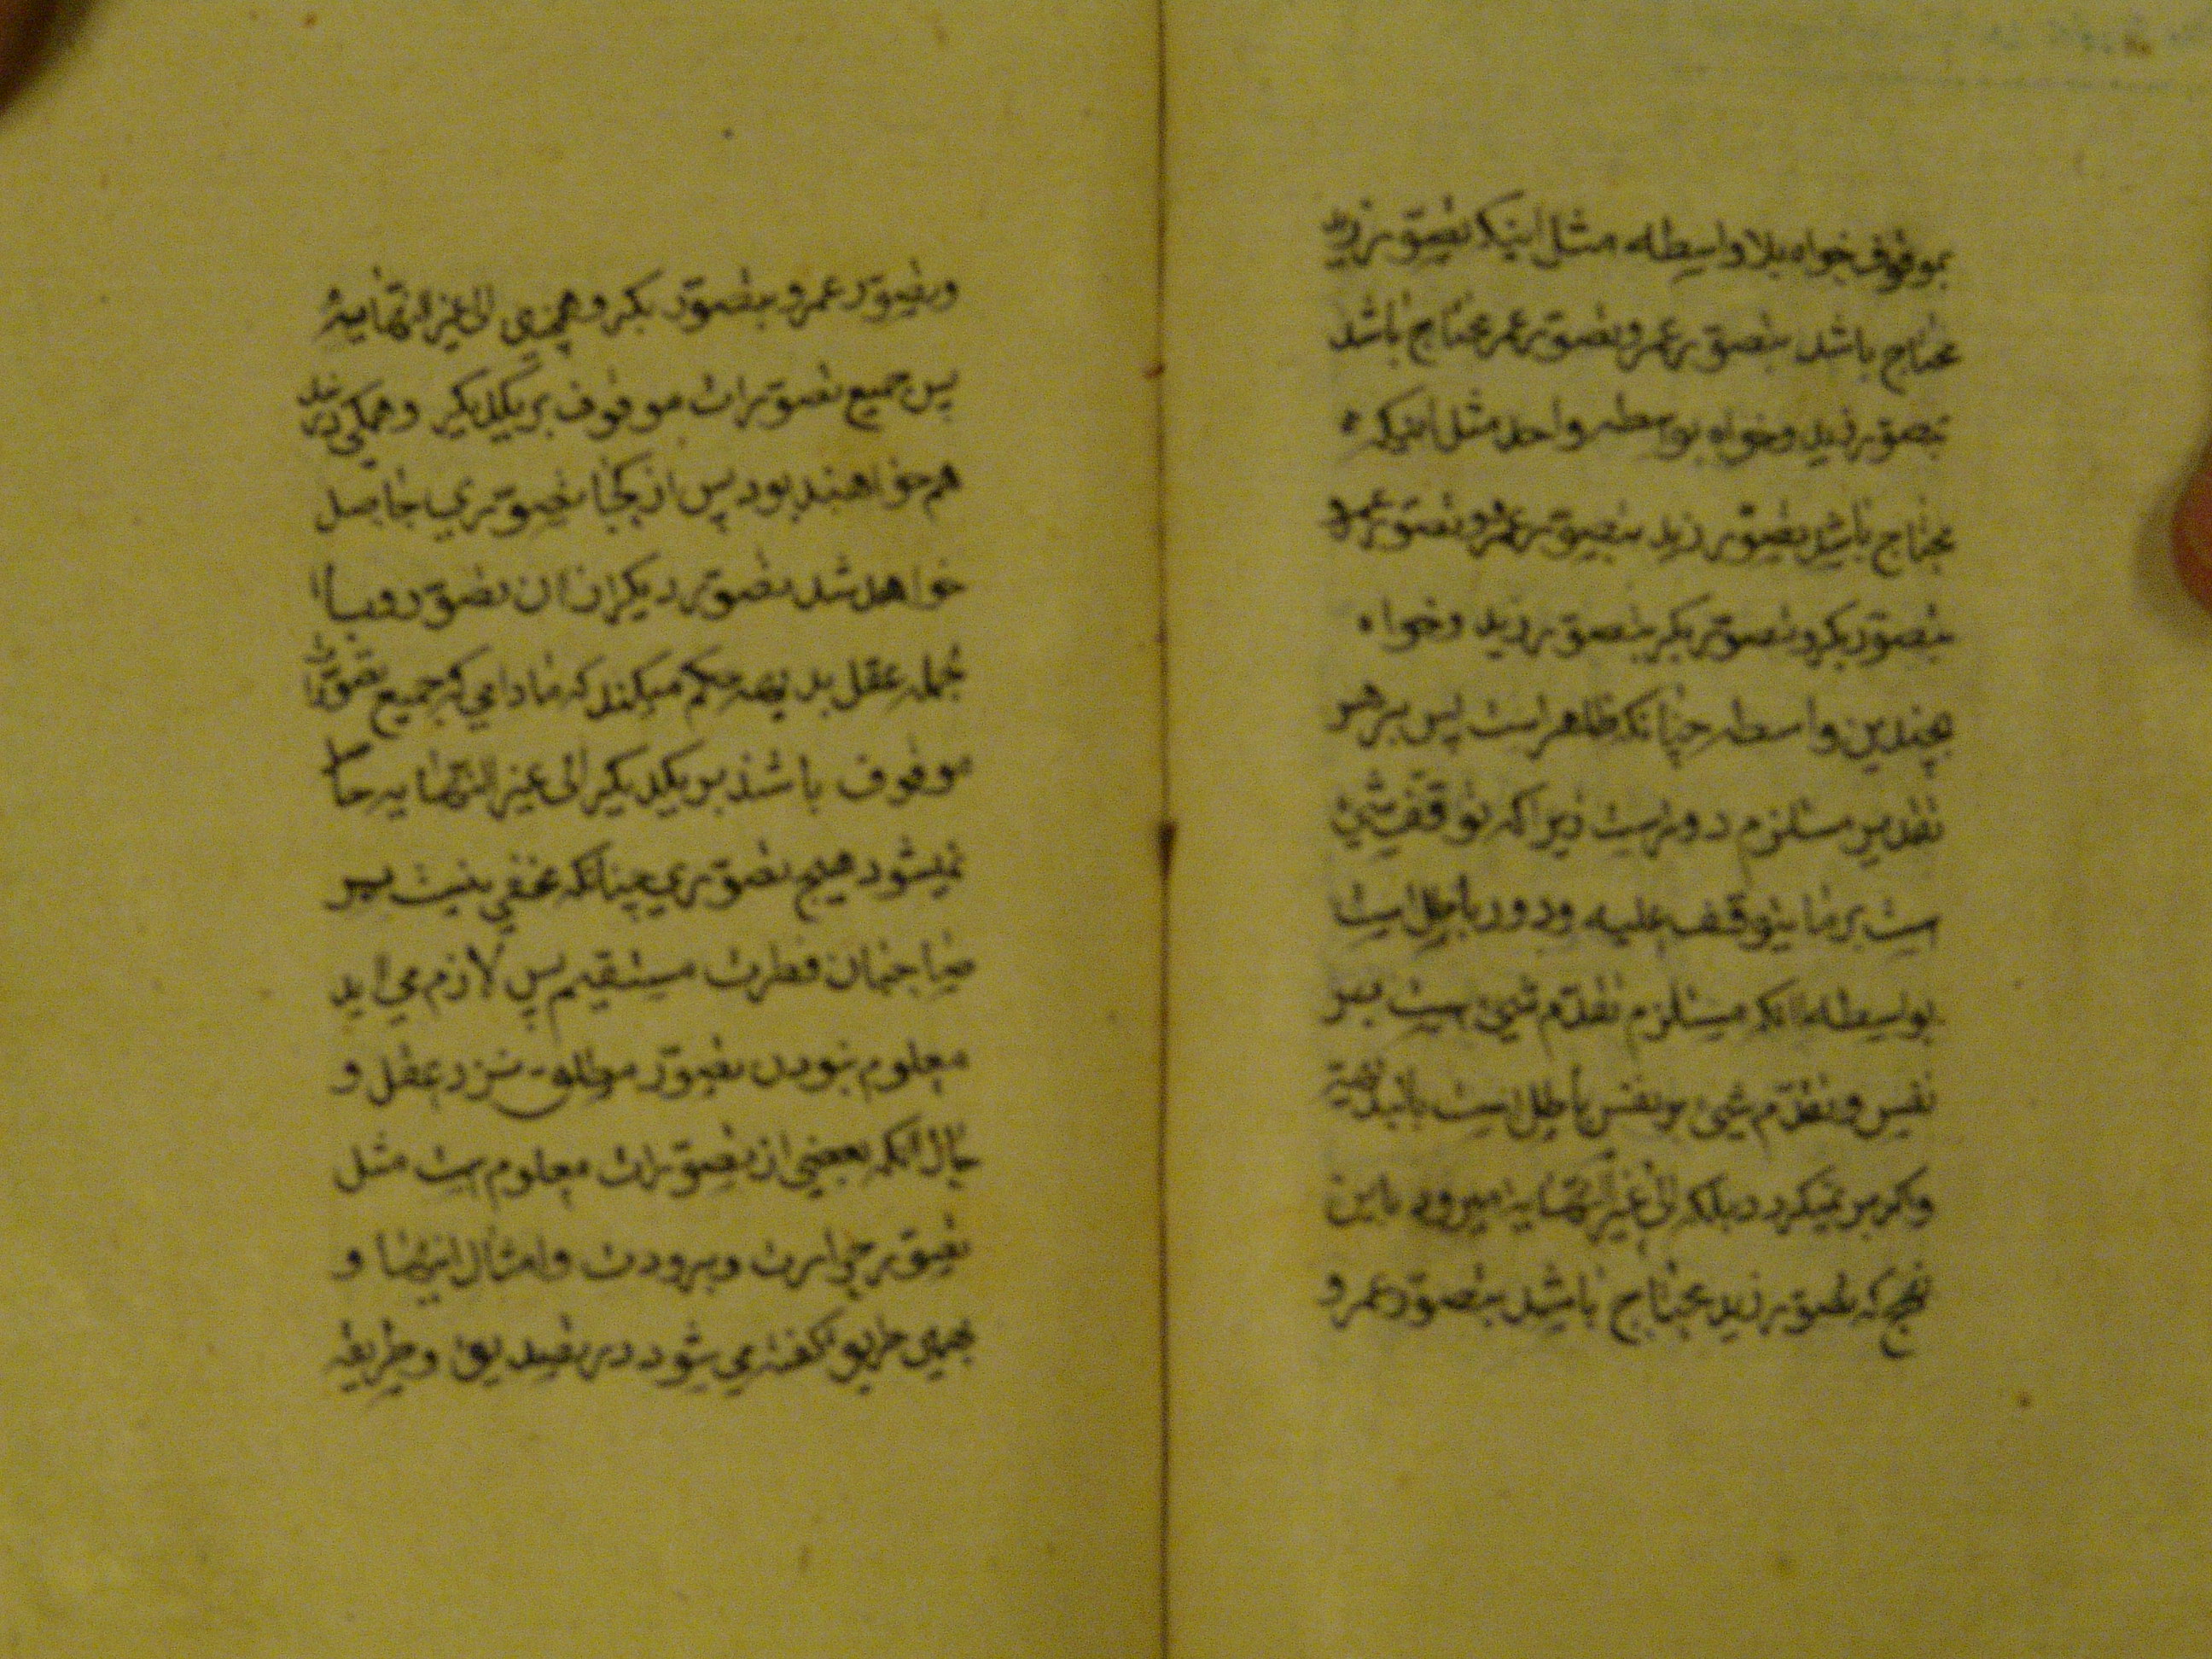 بموقوف خواه بلا واسطه مثل اینکه تصور زید
محتاج باشد بتصور عمر و تصور عمر محتاج باشد
بتصور زید و خواه بواسطه واحد مثل اینکه
محتاج باشد تصور زید بتصور عمرو و تصور عمرو
بتصور بکر و تصور بکر بتصور زید و خواه
بچندین واسطه چنانکه ظاهر است پس بر هر
تقدیر مستلزم دور است زیرا که توقف شیئ
است بر ما یتوقف علیه و دور باطل است
بواسطه انکه مستلزم تقدم شیئ است بر
نفس و تقدم شیئ بر نفس باطل است بالبدیهة
و اکر بر نمیکردد بلکه الی غیر النهایه میرود باین
نهج که تصور زید محتاج باشد بتصور عمرو
و تصور عمرو بتصور بکر و همچنین الی غیر النهایة
پس جمیع تصورات موقوف بر یکدیکر و همکی در بند
هم خواهند بود پس از کجا تصوری حاصل
خواهد شد تصور دیکر از ان تصور و با
لجمله عقل بدیهه حکم میکند که مادامی که جمیع تصورات
موقوف باشند بر یکدیکر الی غیر النهایه حاصل
نمیشود هیچ تصوری چنانکه مخفی نیست بر
صاحبان فطرت مستقیم پس لازم می اید
معلوم نبودن تصور مطلق نزد عقل و
حال انکه بعضی از تصورات معلوم است مثل
تصور حرارت و برودت و امثال اینها و
بهمین طریق کفته می شود در تصدیق و طریقه